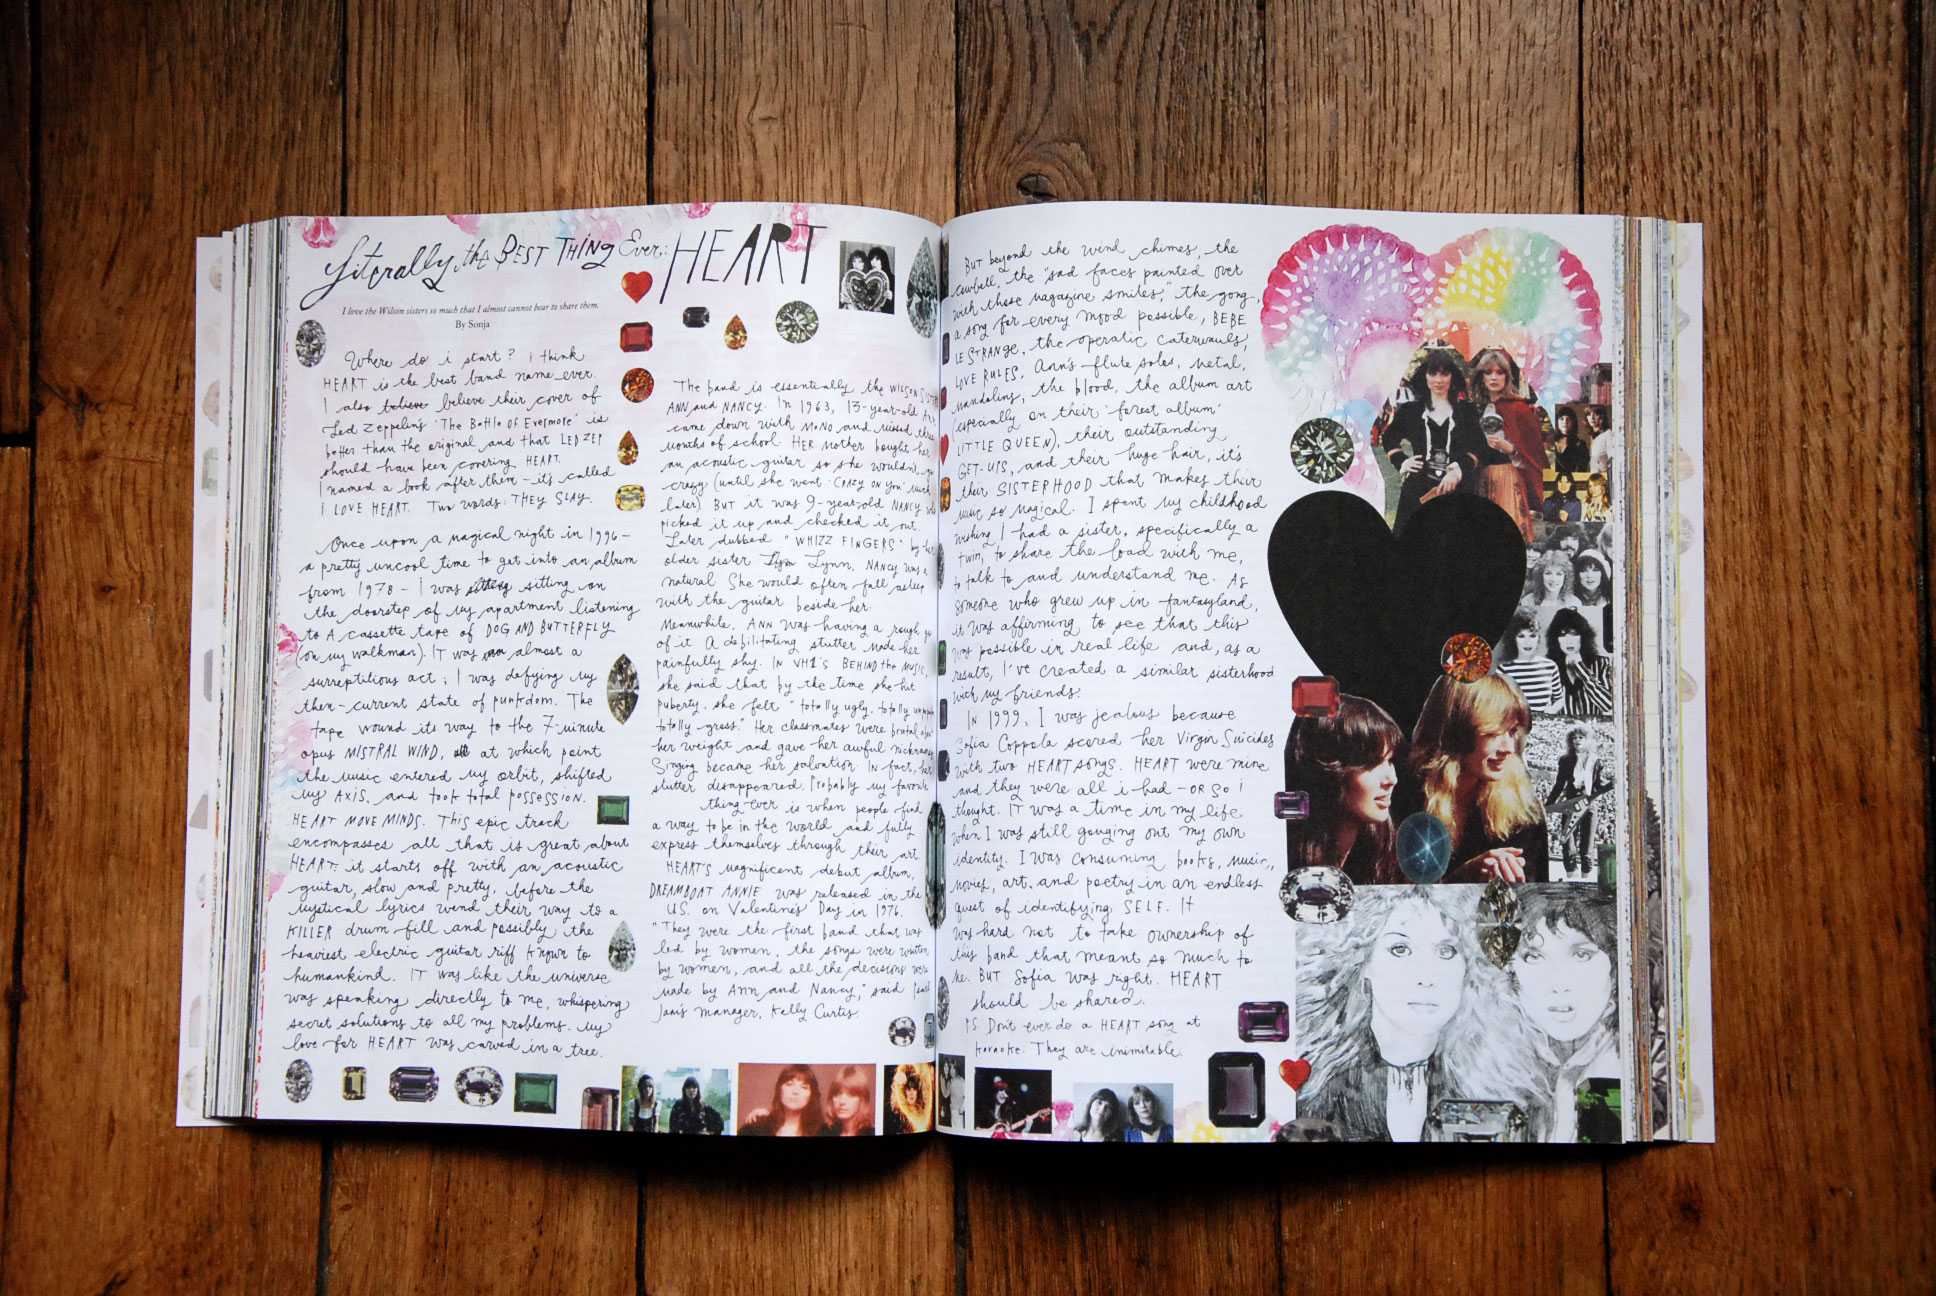 Literally the BEST THING Ever: HEART
I love the Wilson sisters so much that I almost cannot bear to share them.
By Sonja
Where do i start? i think
HEART is the best band name ever.
I also believe believe their cover of
Led Zeppelin's 'The Battle of Evermore' is
better than the original and that LED ZEP
should have been covering HEART.
I named a book after them – it's called
I LOVE HEART. Two words: THEY SLAY.
Once upon a magical night in 1996 –
a pretty uncool time to get into an album
from 1978 – I was sitting on
the doorstep of my apartment listening
to A cassette tape of DOG AND BUTTERFLY
(on my walkman). IT was almost a
surreptitious act; I was defying my
then-current state of punkdom. The
tape wound its way to the 7-minute
opus MISTRAL WIND, at which point
the music entered my orbit, shifted
my AXIS, and took total possession.
HEART MOVE MINDS. This epic track
encompasses all that is great about
HEART: it starts off with an acoustic
guitar, slow and pretty, before the
mystical lyrics wend their way to a
KILLER drum fill and possibly the
heaviest electric guitar riff known to
humankind. IT was like the universe
was speaking directly to me, whispering
secret solutions to all my problems. My
love for HEART was carved in a tree.
The band is essentially the WILSON
ANN and NANCY. In 1963, 13-year-old Ann
came down with MONO and missed three
months of school. HER mother bought her
an acoustic guitar so she wouldn't go
crazy (until she went 'CRAZY ON YOU' much
later) BUT it was 9-year-old NANCY who
picked it up and checked it out.
Later dubbed "WHIZZ FINGERS" by her
older sister Lynn, NANCY was a
natural She would often fall asleep
with the guitar beside her.
Meanwhile, ANN was having a rough go
of it A debilitating stutter made her
painfully shy. IN VH1's BEHIND the MUSIC,
she said that by the time she hit
puberty, she felt "totally ugly, totally
totally gross." Her classmates were brutal about
her weight and gave her awful nicknames
Singing became her salvation IN fact, her
stutter disappeared. Probably my favorite
thing ever is when people find
a way to be in the world and fully
express themselves through their art.
HEART'S magnificent debut album,
DREAMBOAT ANNIE was released in the
U.S. on Valentine's Day in 1976.
"They were the first band that was
led by women, the songs were written
by women, and all the decisions were
made by Ann and Nancy," said
manager, Kelly Curtis.
BUT beyond the wind chimes, the
cowbell, the "sad faces painted over
with those magazine smiles," the gong,
a song for every mood possible, BEBE
LE STRANGE, the operatic caterwauls,
LOVE RULES, Ann's flute solos, metal,
mandolins, the blood, the album art
(especially on their 'forest album'
LITTLE QUEEN), their outstanding
GET-UPS, and their huge hair, it's
their SISTERHOOD that makes their
music so magical. I spent my childhood
wishing I had a sister, specifically a
twin, to share the load with me,
to talk to and understand me. As
someone who grew up in fantasyland,
it was affirming to see that this
was possible in real life and, as a
result, I've created a similar sisterhood
with my friends!
IN 1999, I was jealous because
Sofia Coppola scored her Virgin Suicides
with two HEART songs. HEART were mine
and they were all i had – OR SO I
thought. IT was a time in my life
when I was still gouging out my own
identity. I was consuming books, music,
movies, art, and poetry in an endless
quest of identifying SELF. It
was hard not to take ownership of
this band that meant so much to
me. BUT Sofia was right. HEART
should be shared.
PS Don't ever do a HEART song at
karaoke. They are inimitable.